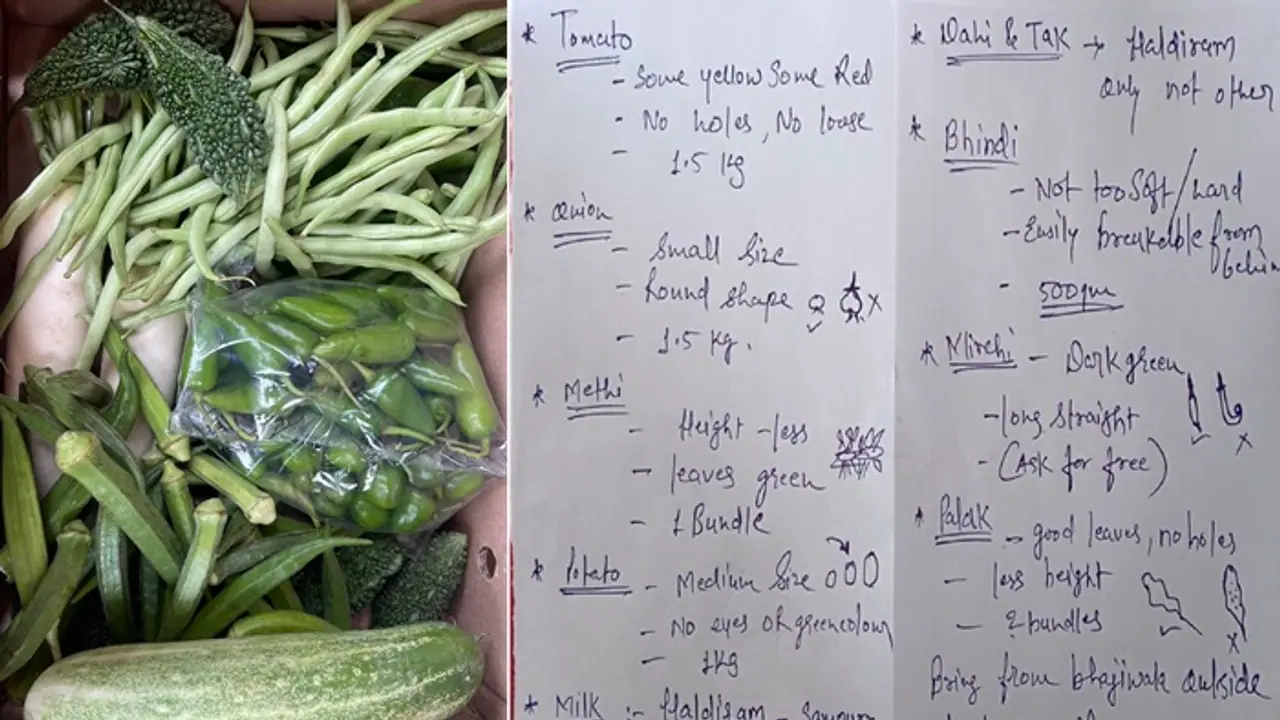 * Tomato
- Some yellow Some Red
- No holes, No loose
- 1.5 kg
* Onion
- Small Size
- Round shape
- 1.5 kg.
* Methi
- Height - less
- leaves green
- 1 Bundle
* Potato - Medium Size
- No eyes or green colour
- 1kg
* Milk :- Haldiram -
* Dahi & Tak → Haldiram
only not other
* Bhindi
- Not too Soft / hard
- Easily breakable from
- 500gm
* Mirchi - Dark green
- long straight
- (Ask for free)
* Palak - good leaves, no holes
- less height
- 2 bundles
Bring from bhajiwala outside